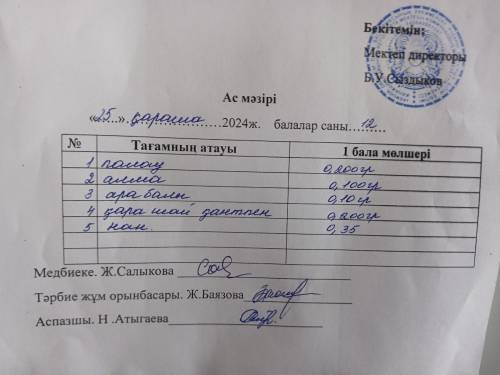 Бекітемін:
Мектеп директоры
Б.У.Сыздыков
Ас мәзірі
«25..» қараша 2024ж. балалар саны 12
№ Тағамның атауы 1 бала мөлшері
1 палау 0,200гр
2 алма 0,100гр
3 ара балы 0,10гр
4 қара шай қантпен 0,200гр
5 нан 0,35
Медбиеке. Ж.Салыкова
Тәрбие жұм орынбасары. Ж.Баязова
Аспазшы. Н .Атыгаева